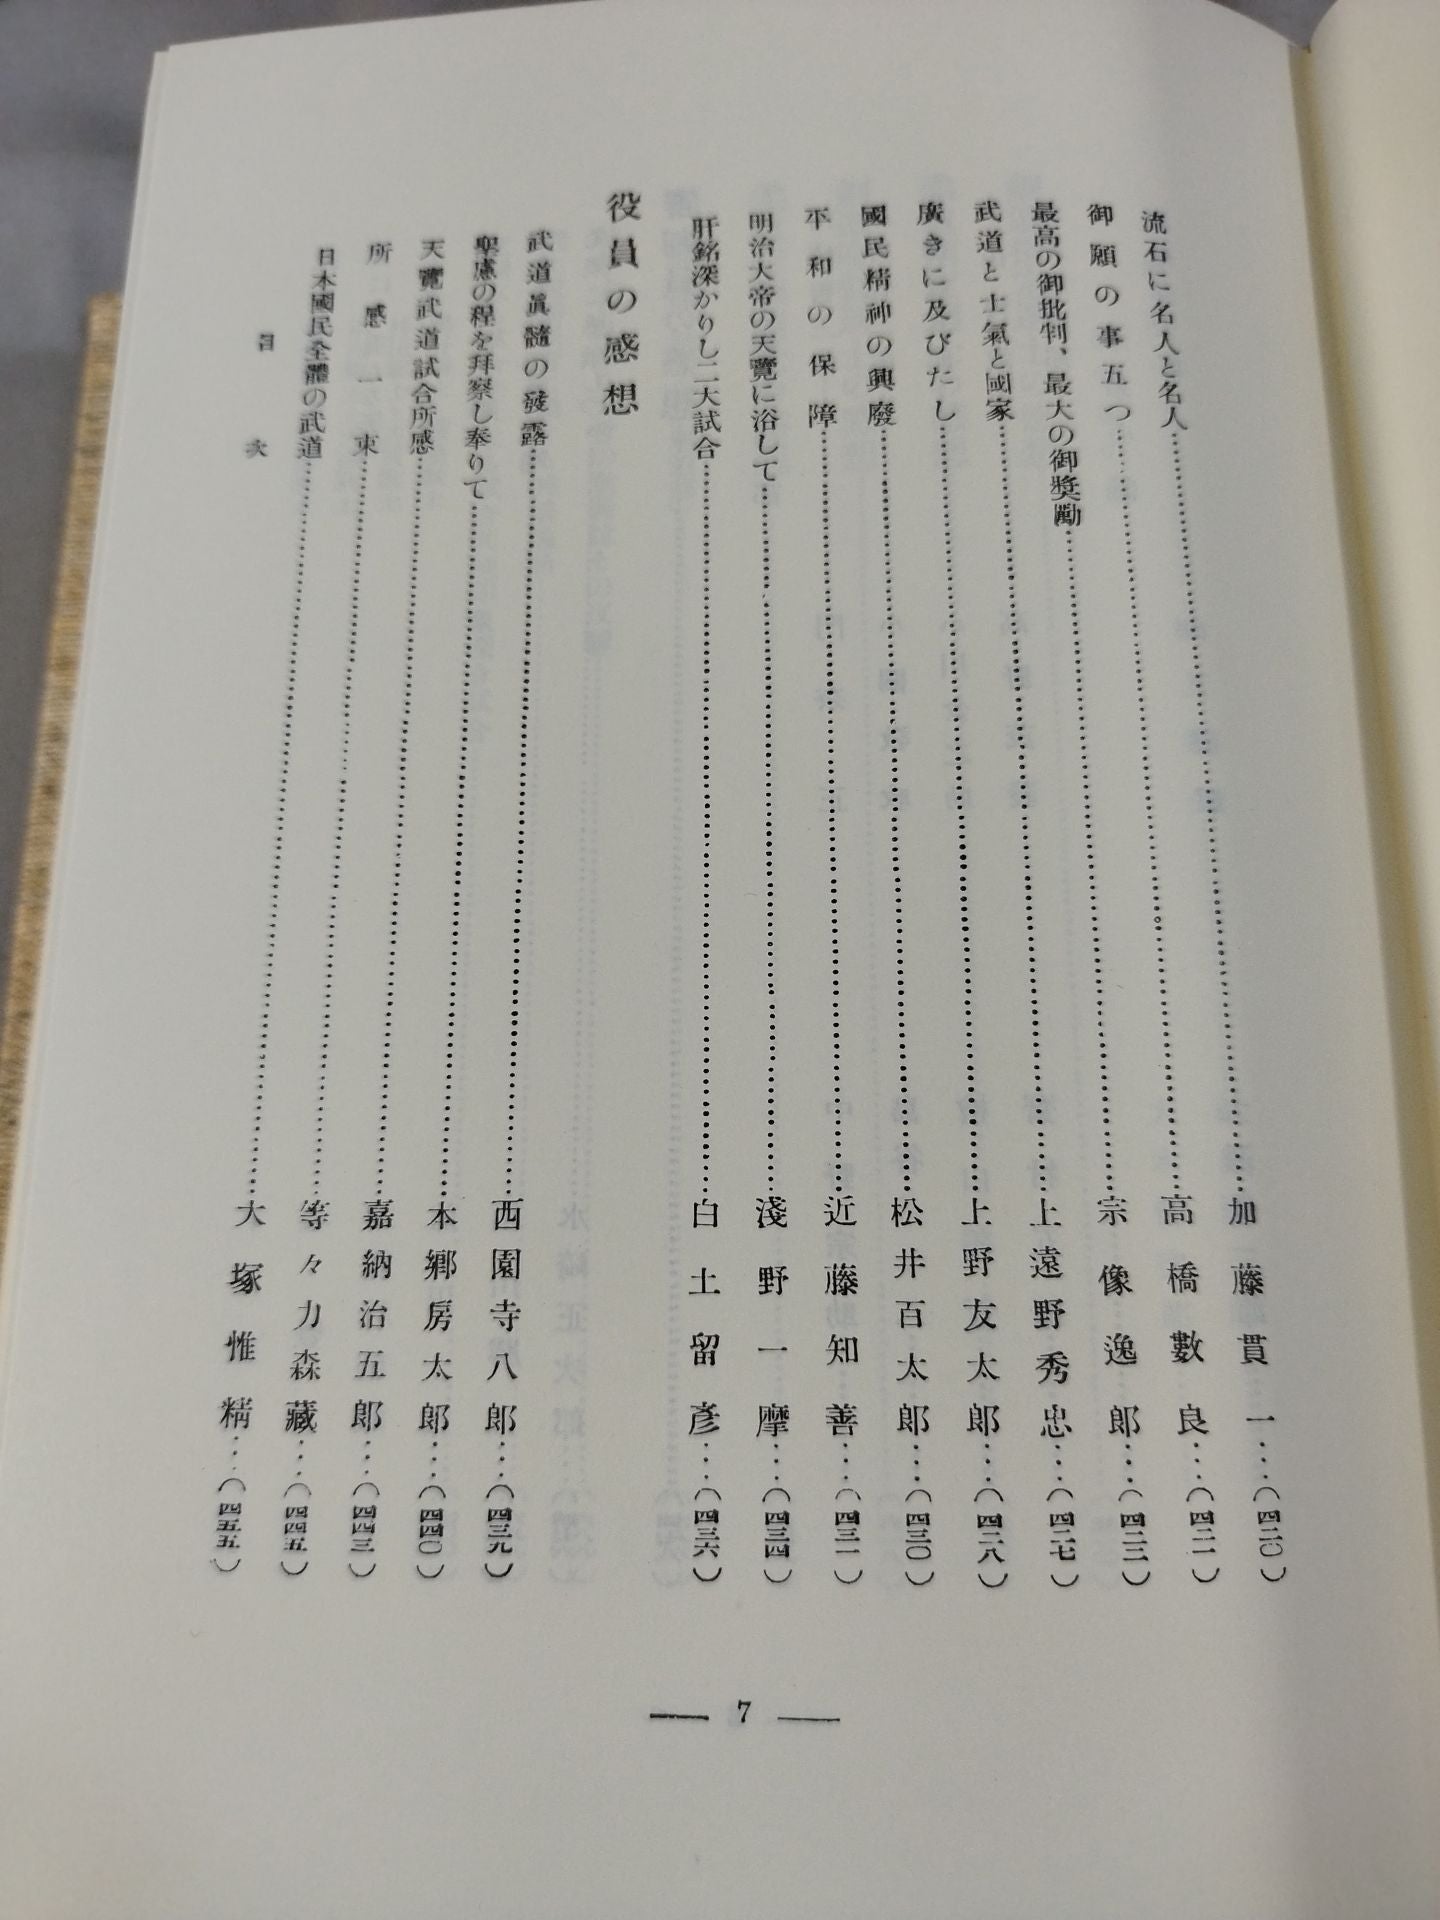 流石に名人と名人……加藤貫一…（四二〇）
御願の事五つ……高橋數良…（四二一）
最高の御批判、最大の御獎勵……宗像逸郎…（四二三）
武道と士氣と國家……上遠野秀忠…（四二七）
廣きに及びたし……上野友太郎…（四二八）
國民精神の興廢……松井百太郎…（四三〇）
平和の保障……近藤知善…（四三一）
明治大帝の天覽に浴して……淺野一摩…（四三四）
肝銘深かりし二大試合……白土留彥…（四三六）
役員の感想
武道眞髓の發露……西園寺八郎…（四三九）
聖慮の程を拜察し奉りて……本鄕房太郎…（四四〇）
天覽武道試合所感……嘉納治五郎…（四四三）
所感一束……等々力森藏…（四四五）
日本國民全體の武道……大塚惟精…（四五五）
目次
7